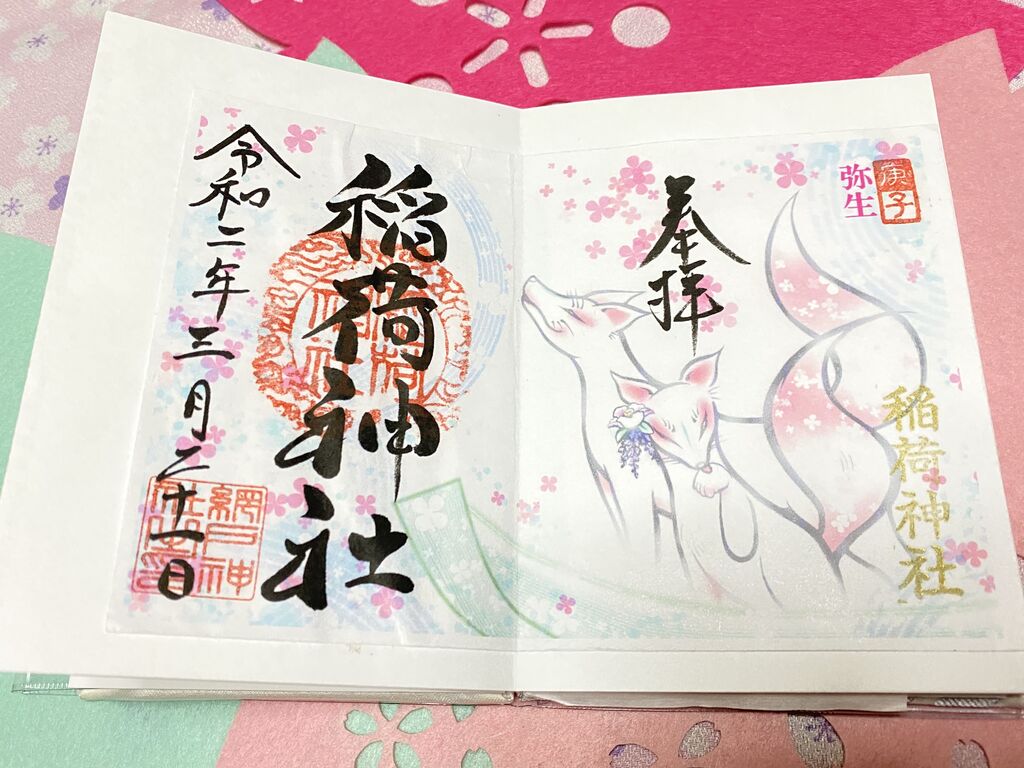 庚子
弥生
奉拝
稲荷神社
稲荷神社
令和二年三月二十一日
網戸神